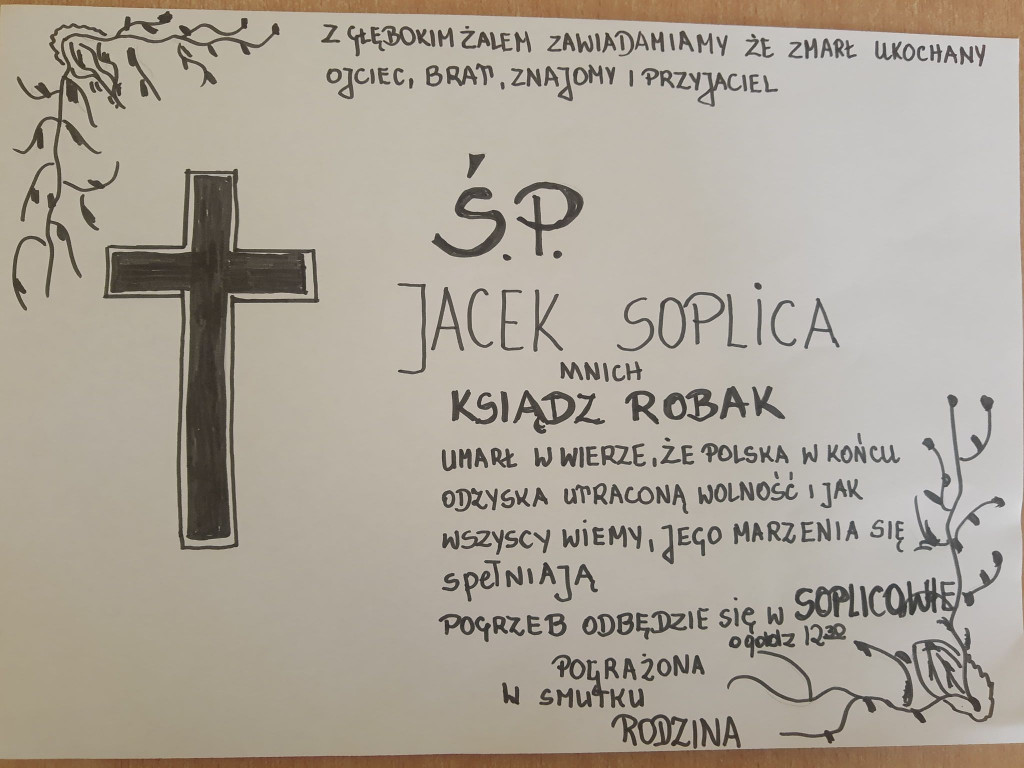 Z GŁĘBOKIM ŻALEM ZAWIADAMIAMY ŻE ZMARŁ UKOCHANY
OJCIEC, BRAT, ZNAJOMY I PRZYJACIEL
Ś.P.
JACEK SOPLICA
MNICH
KSIĄDZ ROBAK
UMARŁ W WIERZE, ŻE POLSKA W KOŃCU
ODZYSKA UTRACONĄ WOLNOŚĆ I JAK
WSZYSCY WIEMY, JEGO MARZENIA SIĘ
SPEŁNIAJĄ
POGRZEB ODBĘDZIE SIĘ W SOPLICOWIE
o godz 12³⁰
POGRĄŻONA
W SMUTKU
RODZINA